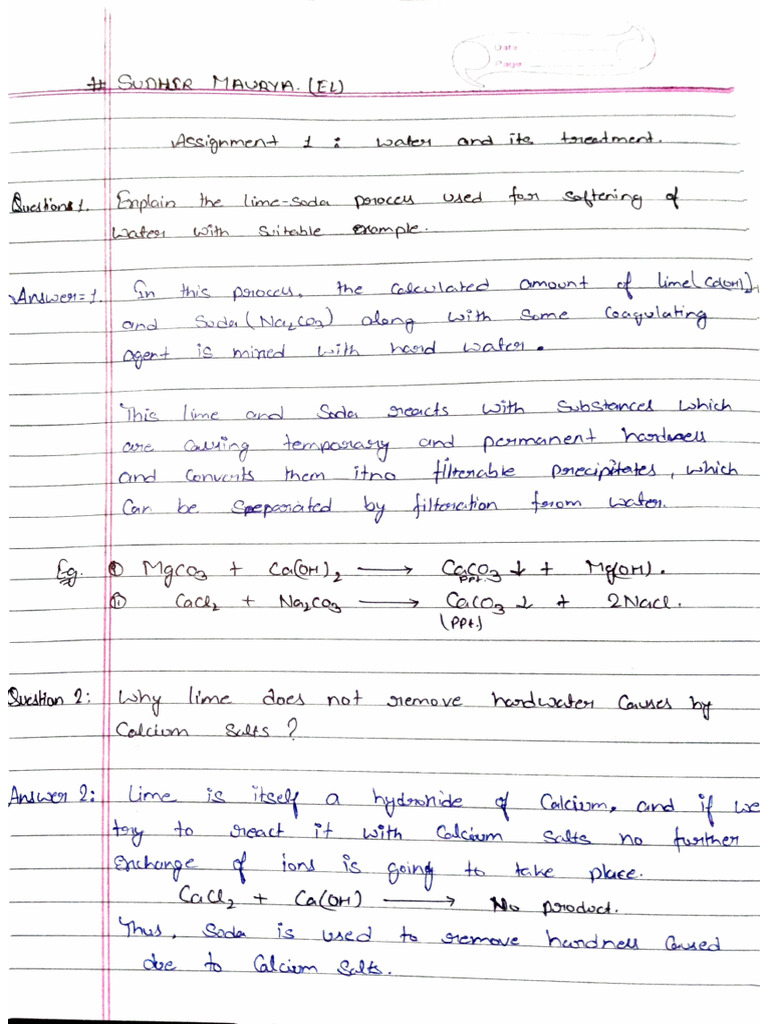 Date
Page
# SUDHIR MAURYA. (EL)
Assignment 1 : water and its treatment.
Questions 1. Explain the lime-soda process used for softening of
water with suitable example.
Answer=1. In this process, the calculated amount of lime (Ca(OH)2)
and Soda (Na2CO3) along with some coagulating
agent is mixed with hard water.
This lime and Soda reacts with substances which
are causing temporary and permanent hardness
and converts them itno filterable precipitates, which
can be seperated by filteration from water.
Eg. (i) MgCO3 + Ca(OH)2 → CaCO3 ↓ + Mg(OH).
ppt.
(ii) CaCl2 + Na2CO3 → CaCO3 ↓ + 2NaCl.
(ppt.)
Question 2: Why lime does not remove hardwater causes by
Calcium Salts?
Answer 2: Lime is itself a hydroxide of Calcium, and if we
try to react it with Calcium salts no further
exchange of ions is going to take place.
CaCl2 + Ca(OH) → No product.
Thus, Soda is used to remove hardness caused
due to Calcium Salts.